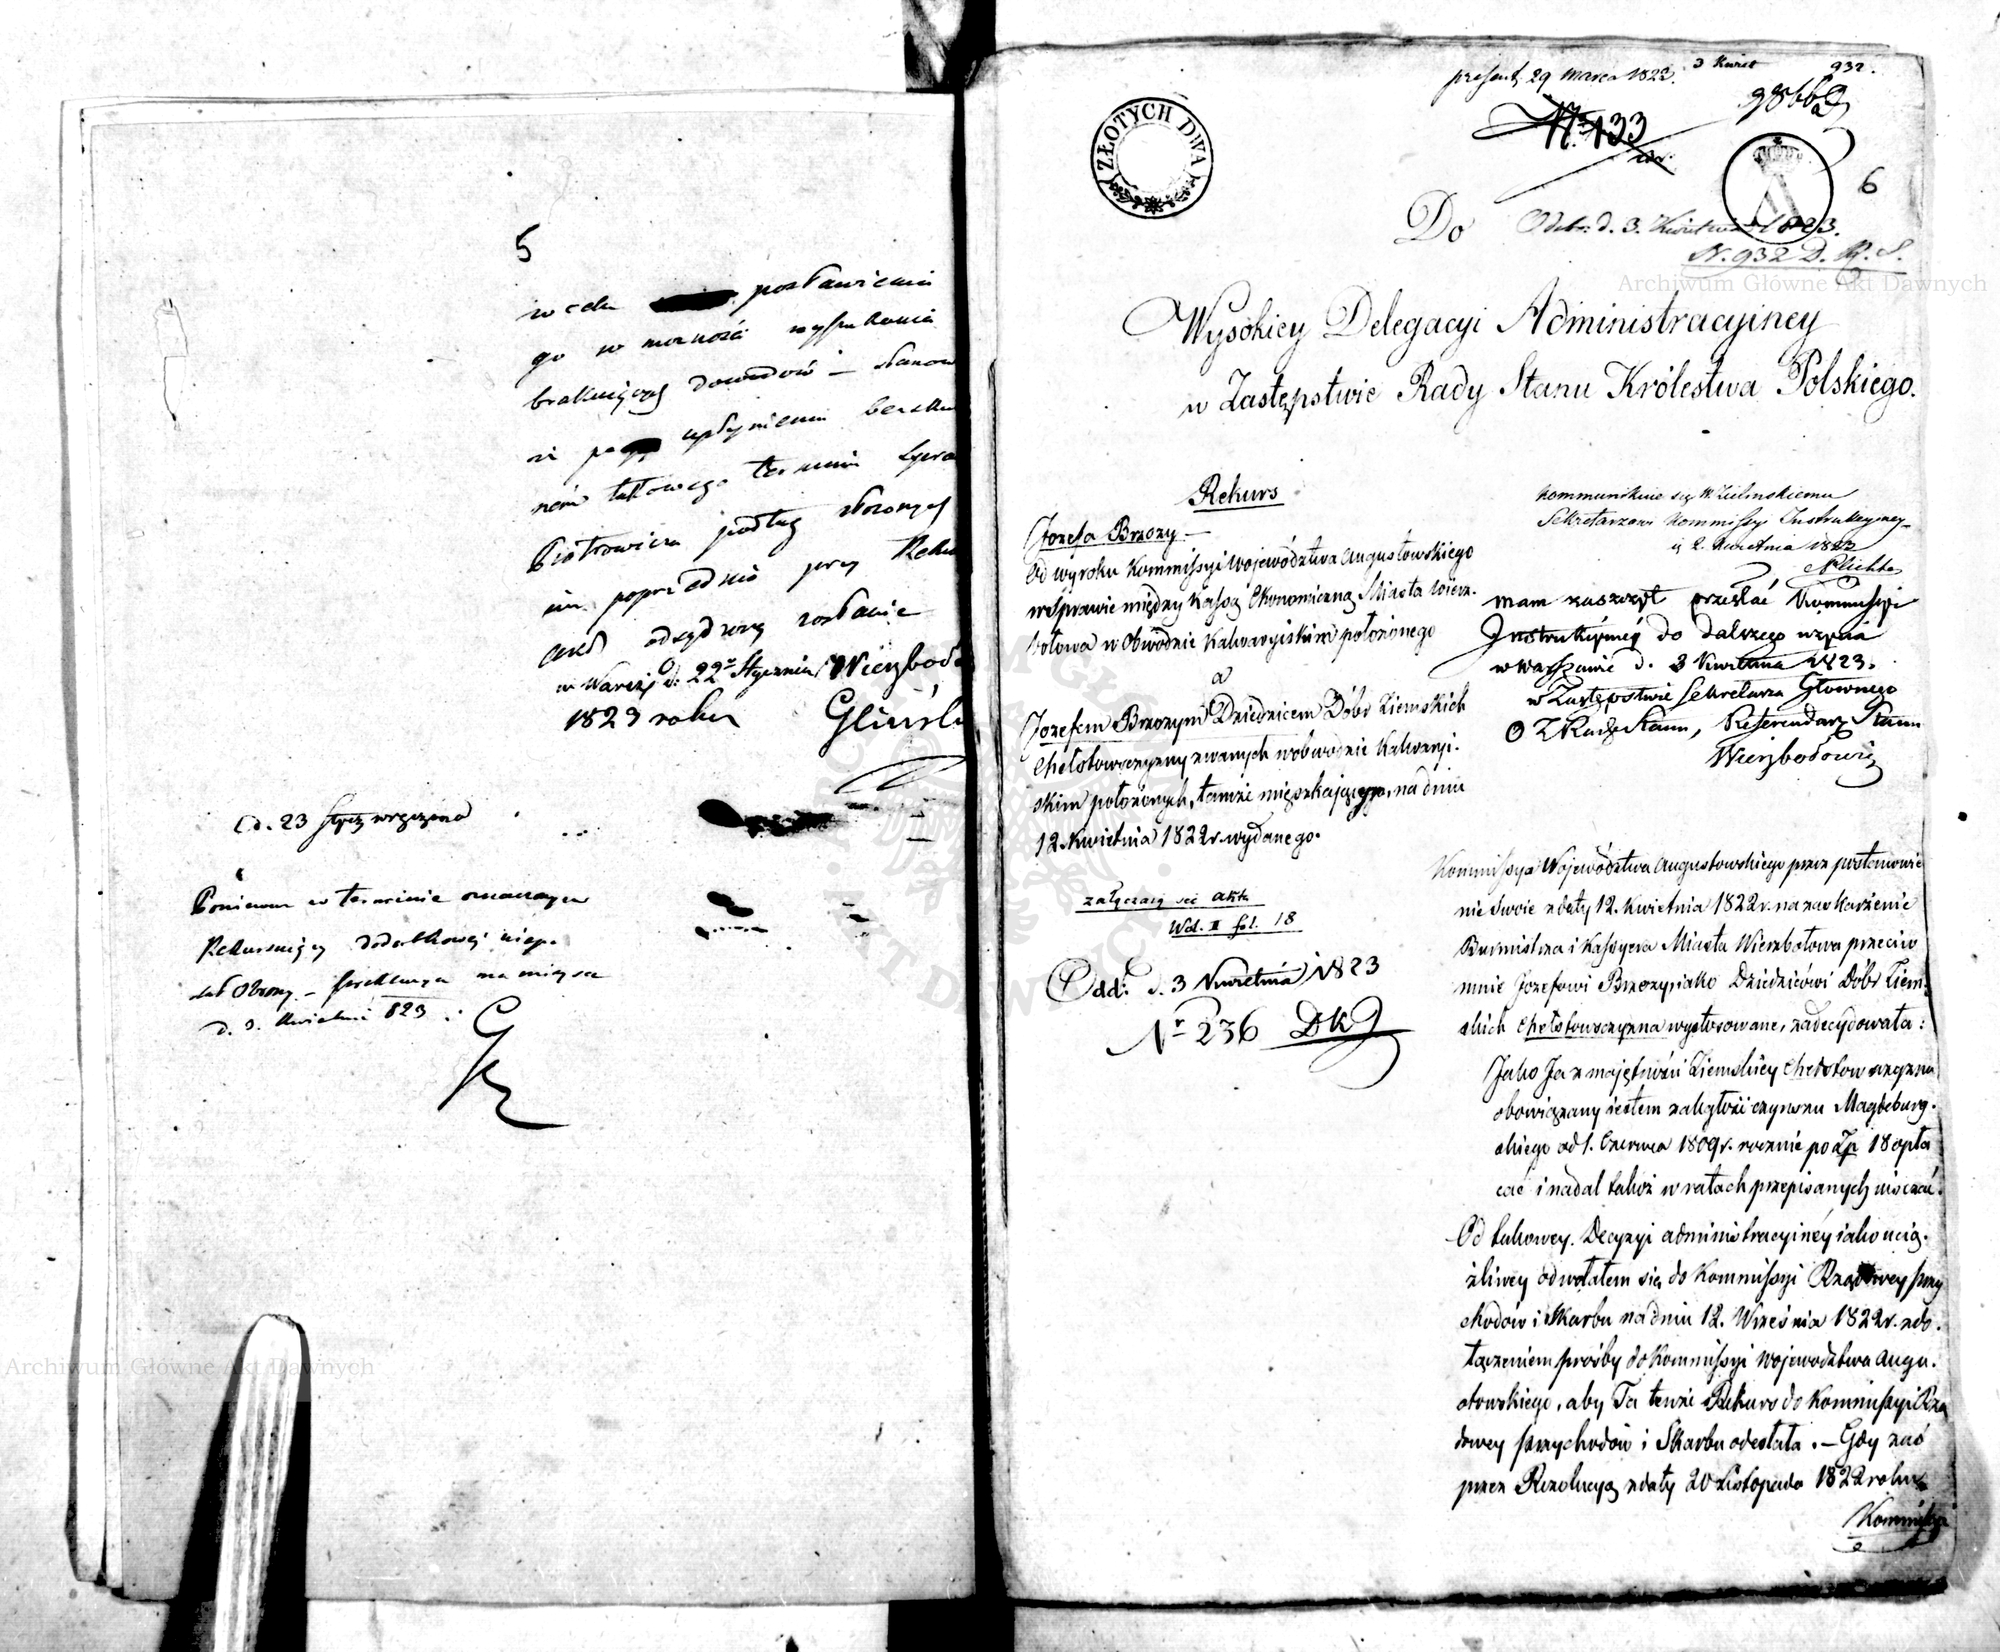 5
w celu postawienia
go w możności wyszukania
brakuiących dowodów – stanow
upłynieniem bezsku
ném takowego terminu Spra
Piotrowicza podług złożonych
poprzednio przy Reku
odsądzoną zostanie
w Warsz. d. 22 Stycznia Wierzbod
1823 roku Glińsk
d. 23 Stycz wręczono
Poniewaz w terminie oznaczonym
Rekurruiący dodatkowej niep.
dał Obrony – na miejsce
d. 3. Kwietnia 823.
present. 29 Marca 1823. 3 Kwiet 932.
No 133
ZŁOTYCH DWA
6
Do Odebr. d. 3. Kwietnia 1823.
N. 932 D. R. S.
Wysokiey Delegacyi Administracyiney
w Zastępstwie Rady Stanu Królestwa Polskiego.
Rekurs
Jozefa Brzozy –
Od wyroku Kommissyi Województwa Augustowskiego
w Sprawie między Kassą Ekonomiczną Miasta Wierz-
bołowa w Obwodzie Kalwaryiskim położonego
a
Jozefem Brzozym Dziedzicem Dóbr Ziemskich
Chełstowszczyzny zwanych w obwodzie Kalwaryi-
skim położonych, tamże mięszkającego, na dniu
12 Kwietnia 1822 r. wydanego.
załączaią się akta
Wol. II fol. 18
Odd: d. 3 Kwietnia 1823
Nr 236 DKJ
Kommunikuie się W. Zielinskiemu
Sekretarzowi Kommissyi Instrukcyiney
2. Kwietnia 1823
Plichta
mam zaszczyt przesłać Kommissyi
Instrukcyiney do dalszego użycia
w Warszawie d. 3 Kwietnia 1823.
w Zastępstwie Sekretarza Głównego
Rady Stanu, Referendarz Stanu
Wierzbołowicz
Kommissya Województwa Augustowskiego przez postanowie
nie swoie z daty 12. Kwietnia 1822 r. na zaskarżenie
Burmistrza i Kassyera Miasta Wierzbołowa przeciw
mnie Jozefowi Brzozy iako Dziedzicowi Dóbr Ziem-
skich Chełstowszczyzna wystosowane, zadecydowała:
Jako Ja z maiętności Ziemskiey Chełstowszczyzna
obowiązany iestem zaległość czynszu Magdeburg-
skiego od 1. Czerwca 1809 r. rocznie po Zp 18 opła
cać i nadal takoż w ratach przepisanych uiszczać.
Od takowey Decyzyi administracyiney iako ucią-
żliwey odwołałem się do Kommissyi Rządowey Przy
chodów i Skarbu na dniu 12. Września 1822 r. z do-
łączeniem prośby do Kommissyi Województwa Augu-
stowskiego, aby Ta tenże Rekurs do Kommissyi Rzą
dowey Przychodów i Skarbu odesłała. – Gdy zaś
przez Rezolucyą z daty 20 Listopada 1822 roku
Kommissya
Archiwum Główne Akt Dawnych
Archiwum Główne Akt Dawnych